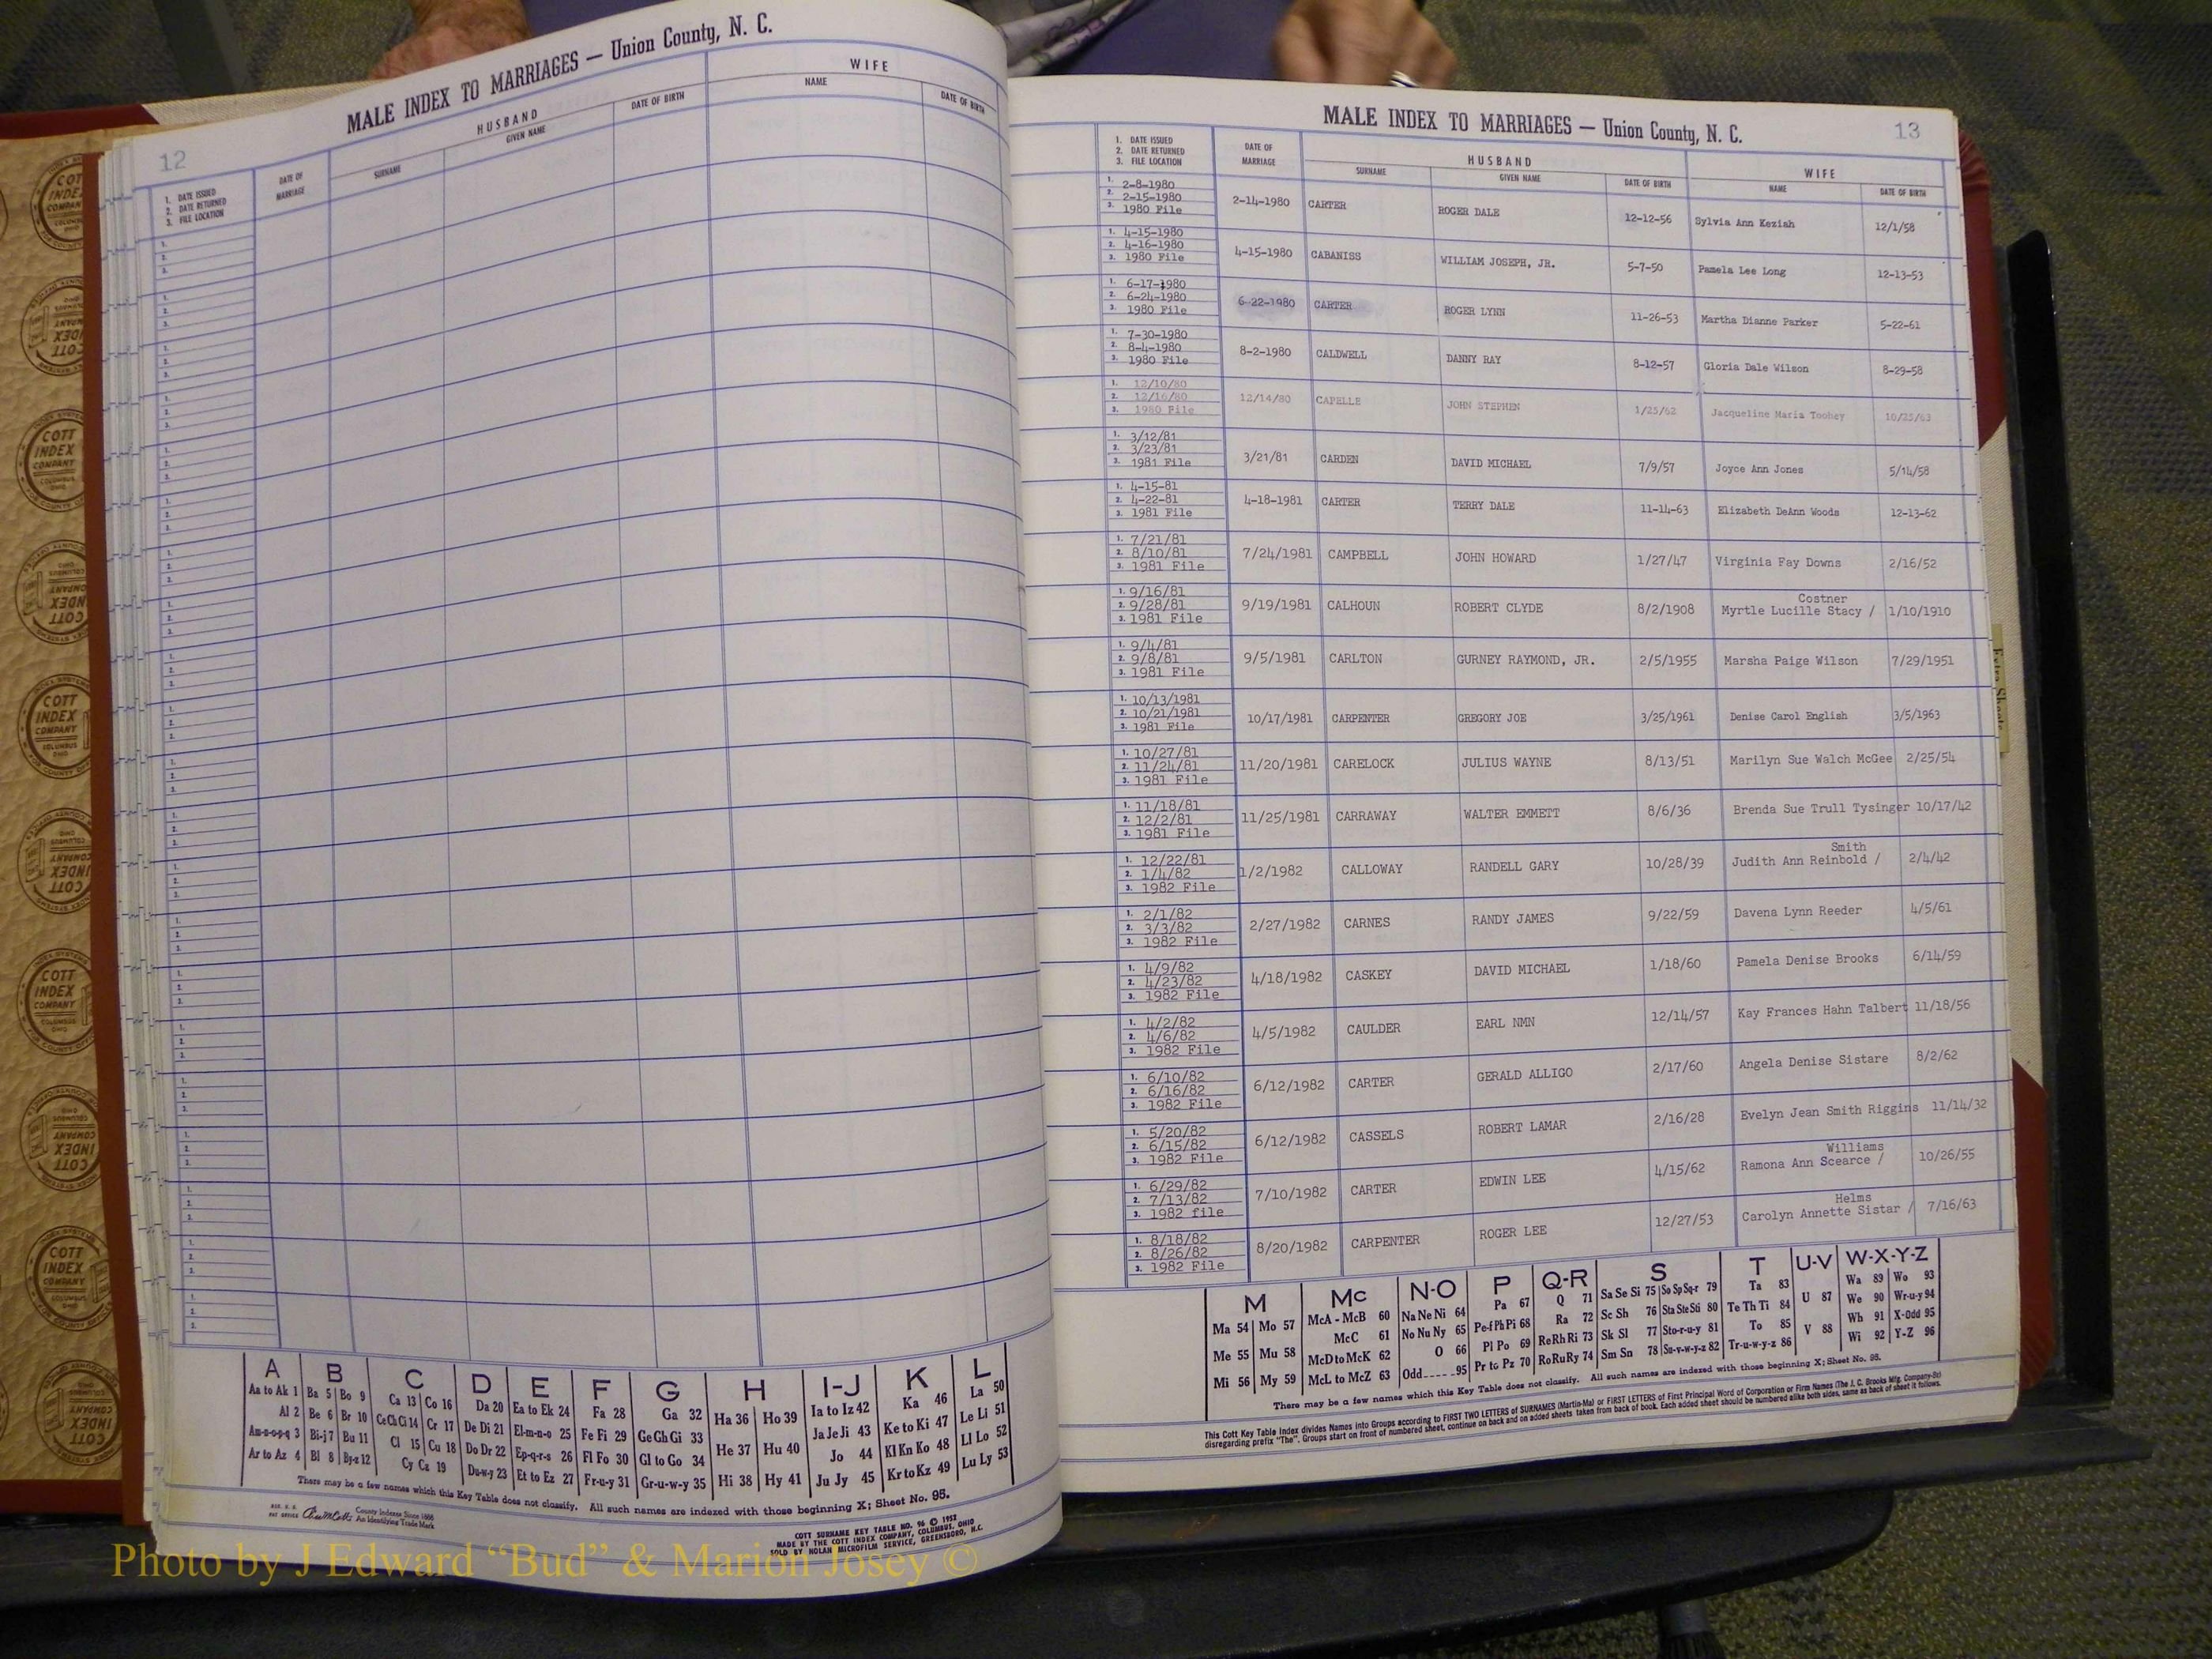 12
MALE INDEX TO MARRIAGES — Union County, N. C.
1. DATE ISSUED
2. DATE RETURNED
3. FILE LOCATION
DATE OF MARRIAGE
HUSBAND
SURNAME GIVEN NAME DATE OF BIRTH
WIFE
NAME DATE OF BIRTH
A B C D E F G H I-J K L
Aa to Ak 1 Ba 5 Bo 9 Ca 13 Co 16 Da 20 Ea to Ek 24 Fa 28 Ga 32 Ha 36 Ho 39 Ia to Iz 42 Ka 46 La 50
Al 2 Be 6 Br 10 Ce Ch Ci 14 Cr 17 De Di 21 El-m-n-o 25 Fe Fi 29 Ge Gh Gi 33 He 37 Hu 40 Ja Je Ji 43 Ke to Ki 47 Le Li 51
Am-n-o-p-q 3 Bi-j 7 Bu 11 Cl 15 Cu 18 Do Dr 22 Ep-q-r-s 26 Fl Fo 30 Gl to Go 34 Hi 38 Hy 41 Jo 44 Kl Kn Ko 48 Ll Lo 52
Ar to Az 4 Bl 8 By-z 12 Cy Cz 19 Du-w-y 23 Et to Ez 27 Fr-u-y 31 Gr-u-w-y 35 Ju Jy 45 Kr to Kz 49 Lu Ly 53
There may be a few names which this Key Table does not classify. All such names are indexed with those beginning X; Sheet No. 95.
County Indexes Since 1888
An Identifying Trade Mark
COTT SURNAME KEY TABLE NO. 96 © 1952
MADE BY THE COTT INDEX COMPANY, COLUMBUS, OHIO
SOLD BY NOLAN MICROFILM SERVICE, GREENSBORO, N.C.
COTT INDEX COMPANY COLUMBUS OHIO
MALE INDEX TO MARRIAGES — Union County, N. C.
13
1. DATE ISSUED
2. DATE RETURNED
3. FILE LOCATION
DATE OF MARRIAGE
HUSBAND
SURNAME GIVEN NAME DATE OF BIRTH
WIFE
NAME DATE OF BIRTH
1. 2-8-1980
2. 2-15-1980
3. 1980 File
2-14-1980 CARTER ROGER DALE 12-12-56 Sylvia Ann Keziah 12/1/58
1. 4-15-1980
2. 4-16-1980
3. 1980 File
4-15-1980 CABANISS WILLIAM JOSEPH, JR. 5-7-50 Pamela Lee Long 12-13-53
1. 6-17-1980
2. 6-24-1980
3. 1980 File
6-22-1980 CARTER ROGER LYNN 11-26-53 Martha Dianne Parker 5-22-61
1. 7-30-1980
2. 8-4-1980
3. 1980 File
8-2-1980 CALDWELL DANNY RAY 8-12-57 Gloria Dale Wilson 8-29-58
1. 12/10/80
2. 12/16/80
3. 1980 File
12/14/80 CAPELLE JOHN STEPHEN 1/23/62 Jacqueline Maria Toohey 10/23/63
1. 3/12/81
2. 3/23/81
3. 1981 File
3/21/81 CARDEN DAVID MICHAEL 7/9/57 Joyce Ann Jones 5/14/58
1. 4-15-81
2. 4-22-81
3. 1981 File
4-18-1981 CARTER TERRY DALE 11-14-63 Elizabeth DeAnn Woods 12-13-62
1. 7/21/81
2. 8/10/81
3. 1981 File
7/24/1981 CAMPBELL JOHN HOWARD 1/27/47 Virginia Fay Downs 2/16/52
1. 9/16/81
2. 9/28/81
3. 1981 File
Costner
9/19/1981 CALHOUN ROBERT CLYDE 8/2/1908 Myrtle Lucille Stacy / 1/10/1910
1. 9/4/81
2. 9/8/81
3. 1981 File
9/5/1981 CARLTON GURNEY RAYMOND, JR. 2/5/1955 Marsha Paige Wilson 7/29/1951
1. 10/13/1981
2. 10/21/1981
3. 1981 File
10/17/1981 CARPENTER GREGORY JOE 3/25/1961 Denise Carol English 3/5/1963
1. 10/27/81
2. 11/24/81
3. 1981 File
11/20/1981 CARELOCK JULIUS WAYNE 8/13/51 Marilyn Sue Walch McGee 2/25/54
1. 11/18/81
2. 12/2/81
3. 1981 File
11/25/1981 CARRAWAY WALTER EMMETT 8/6/36 Brenda Sue Trull Tysinger 10/17/42
1. 12/22/81
2. 1/4/82
3. 1982 File
Smith
1/2/1982 CALLOWAY RANDELL GARY 10/28/39 Judith Ann Reinbold / 2/4/42
1. 2/1/82
2. 3/3/82
3. 1982 File
2/27/1982 CARNES RANDY JAMES 9/22/59 Davena Lynn Reeder 4/5/61
1. 4/9/82
2. 4/23/82
3. 1982 File
4/18/1982 CASKEY DAVID MICHAEL 1/18/60 Pamela Denise Brooks 6/14/59
1. 4/2/82
2. 4/6/82
3. 1982 File
4/5/1982 CAULDER EARL NMN 12/14/57 Kay Frances Hahn Talbert 11/18/56
1. 6/10/82
2. 6/16/82
3. 1982 File
6/12/1982 CARTER GERALD ALLIGO 2/17/60 Angela Denise Sistare 8/2/62
1. 5/20/82
2. 6/15/82
3. 1982 File
6/12/1982 CASSELS ROBERT LAMAR 2/16/28 Evelyn Jean Smith Riggins 11/14/32
1. 6/29/82
2. 7/13/82
3. 1982 file
Williams
7/10/1982 CARTER EDWIN LEE 4/15/62 Ramona Ann Scearce / 10/26/55
1. 8/18/82
2. 8/26/82
3. 1982 File
Helms
8/20/1982 CARPENTER ROGER LEE 12/27/53 Carolyn Annette Sistar / 7/16/63
M Mc N-O P Q-R S T U-V W-X-Y-Z
Ma 54 Mo 57 McA - McB 60 Na Ne Ni 64 Pa 67 Q 71 Sa Se Si 75 So Sp Sq-r 79 Ta 83 U 87 Wa 89 Wo 93
Me 55 Mu 58 McC 61 No Nu Ny 65 Pe-f Ph Pi 68 Ra 72 Sc Sh 76 Sta Ste Sti 80 Te Th Ti 84 V 88 We 90 Wr-u-y 94
Mi 56 My 59 McD to McK 62 O 66 Pl Po 69 Re Rh Ri 73 Sk Sl 77 Sto-r-u-y 81 To 85 Wh 91 X-Odd 95
McL to McZ 63 Odd 95 Pr to Pz 70 Ro Ru Ry 74 Sm Sn 78 Su-v-w-y-z 82 Tr-u-w-y-z 86 Wi 92 Y-Z 96
There may be a few names which this Key Table does not classify. All such names are indexed with those beginning X; Sheet No. 95.
This Cott Key Table Index divides Names into Groups according to FIRST TWO LETTERS of SURNAMES (Martin-Ma) or FIRST LETTERS of First Principal Word of Corporation or Firm Names (The J. C. Brooks Mfg. Company-Br)
disregarding prefix "The". Groups start on front of numbered sheet, continue on back and on added sheets taken from back of book. Each added sheet should be numbered alike both sides, same as back of sheet it follows.
Extra Sheets
Photo by J Edward “Bud” & Marion Josey ©